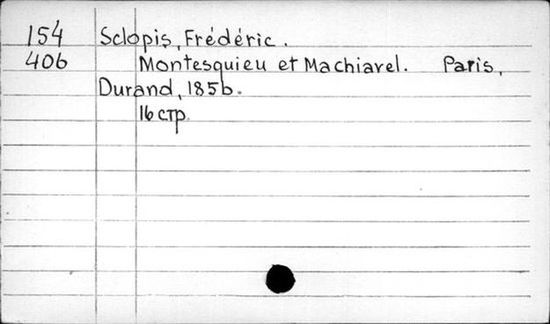 154 Sclopis, Frédéric.
406 Montesquieu et Machiavel. Paris,
Durand, 1856.
16 стр.